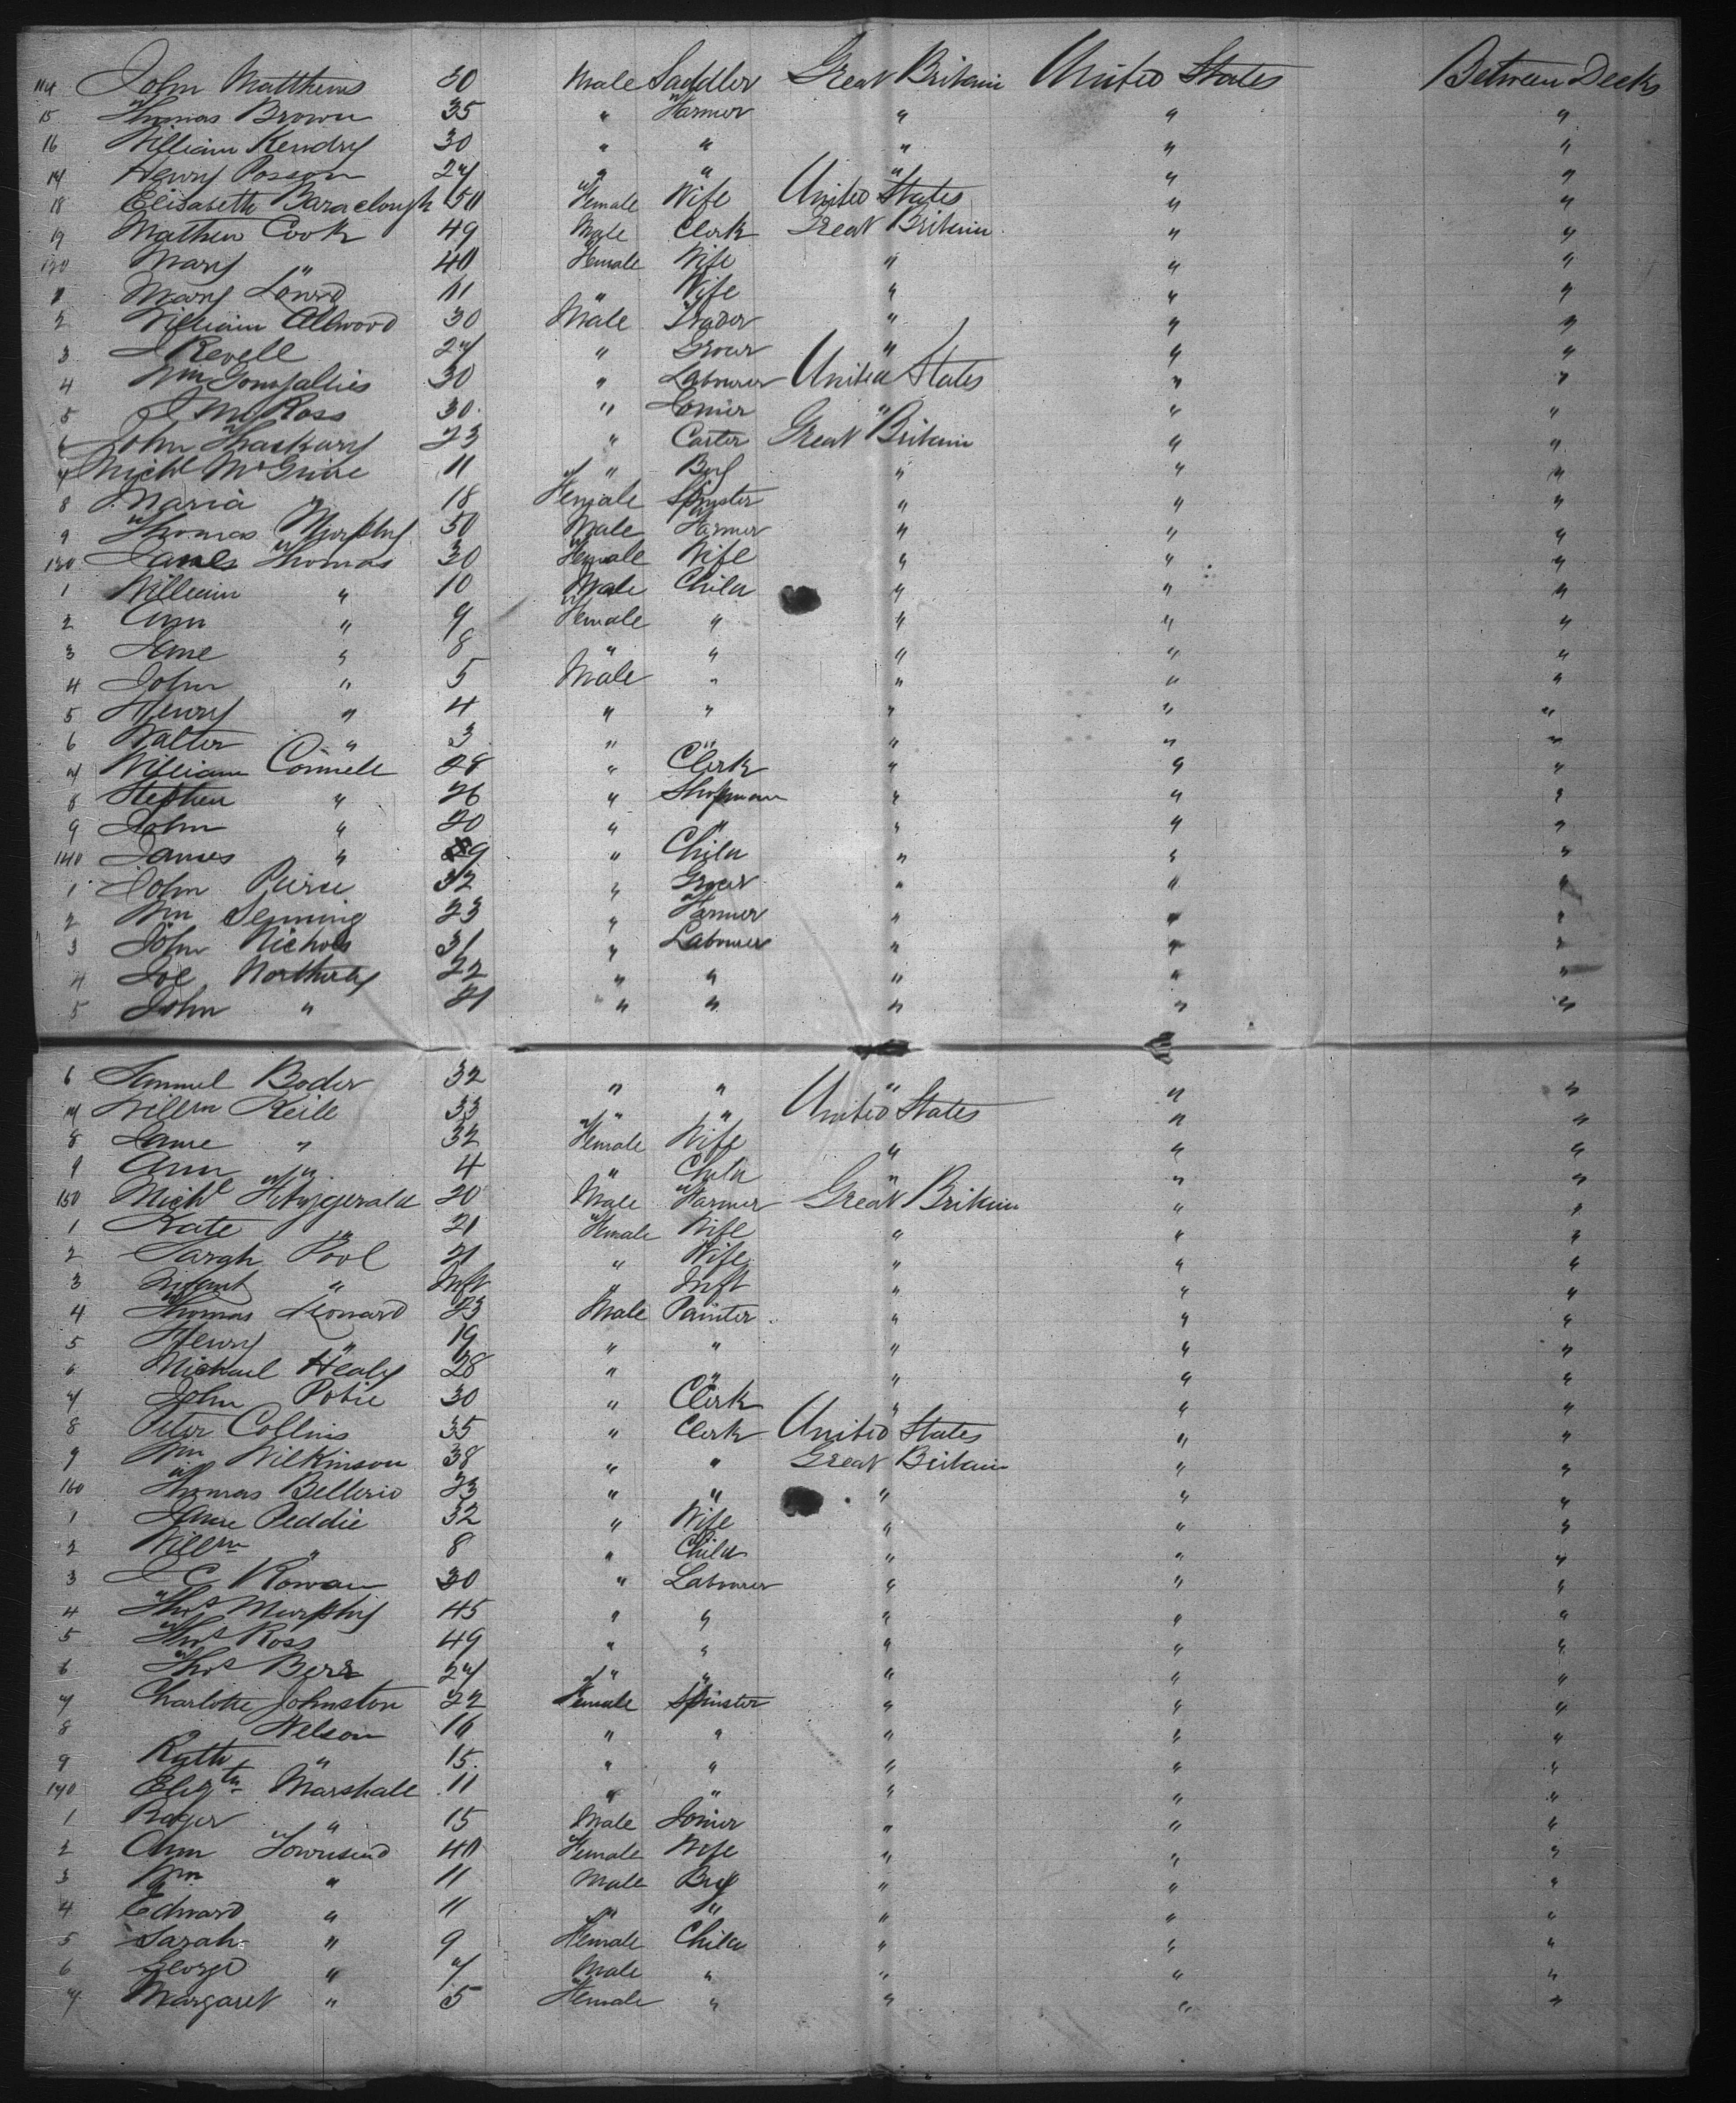 114 John Matthews 30 Male Saddler Great Britain United States Between Decks
15 Thomas Brown 35 " Farmer " " "
16 William Kendry 30 " " " " "
17 Henry Posson 27 " " " " "
18 Elisabeth Baraclough 50 Female Wife United States " "
19 Mathew Cook 49 Male Clerk Great Britain " "
120 Mary " 40 Female Wife " " "
1 Mary 11 " Wife " " "
2 William Allwood 30 Male Trader " " "
3 J Revell 27 " Grocer " " "
4 Wm 30 " Labourer United States " "
5 J M Ross 30 " Joiner " " "
6 John Thackary 23 " Carter Great Britain " "
7 Michl 11 " Boy " " "
8 Maria " 18 Female Spinster " " "
9 Thomas Murphy 50 Male Farmer " " "
130 James Thomas 30 Female Wife " " "
1 William " 10 Male Child " " "
2 Ann " 9 Female " " " "
3 Jane " 8 " " " " "
4 John " 5 Male " " " "
5 Henry " 4 " " " " "
6 Walter " 3 " " " " "
7 William Connell 28 " Clerk " " "
8 Stephen " 26 " Shopman " " "
9 John " 20 " " " " "
140 James " 9 " Child " " "
1 John Peirce 32 " Grocer " " "
2 Wm 23 " Farmer " " "
3 John Nichols 31 " Labourer " " "
4 Joe Northerly 22 " " " " "
5 John " 21 " " " " "
6 Samuel Boder 32 " " " " "
7 Willm Keile 33 " " United States " "
8 Jane " 32 Female Wife " " "
9 Ann " 4 " Child " " "
150 Michl Fitzgerald 20 Male Farmer Great Britain " "
1 Kate " 21 Female Wife " " "
2 Sarah Pool 21 " Wife " " "
3 Infant " Inft " Inft " " "
4 Thomas Leonard 23 Male Painter " " "
5 Henry " 19 " " " " "
6 Michael Healy 28 " " " " "
7 John Potie 30 " Clerk " " "
8 Peter Collins 35 " Clerk United States " "
9 Wm Wilkinson 38 " " Great Britain " "
160 Thomas Bellerio 23 " " " " "
1 Jane Peddie 32 " Wife " " "
2 Willm " 8 " Child " " "
3 J C Rowan 30 " Labourer " " "
4 Thos Murphy 45 " " " " "
5 Thos Ross 49 " " " " "
6 Thos 27 " " " " "
7 Charlotte Johnston 22 Female Spinster " " "
8 Nelson 16 " " " " "
9 Ruth " 15 " " " " "
170 Elizth Marshall 11 " " " " "
1 Roger " 15 Male Joiner " " "
2 Ann Townsend 40 Female Wife " " "
3 Wm " 11 Male Boy " " "
4 Edward " 11 " " " " "
5 Sarah " 9 Female Child " " "
6 George " 7 Male " " " "
7 Margaret " 5 Female " " " "